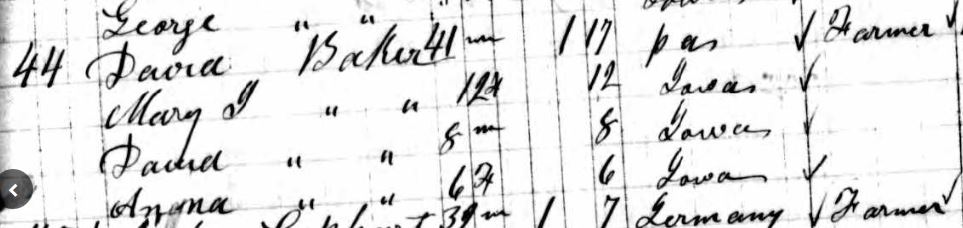 George " "
44 David Baker 41 m 1 17 pas ✓ Farmer ✓
Mary J " " 12 F 12 Iowa ✓
David " " 8 m 8 Iowa ✓
Anna " " 6 F 6 Iowa ✓
39 m 1 7 Germany ✓ Farmer ✓